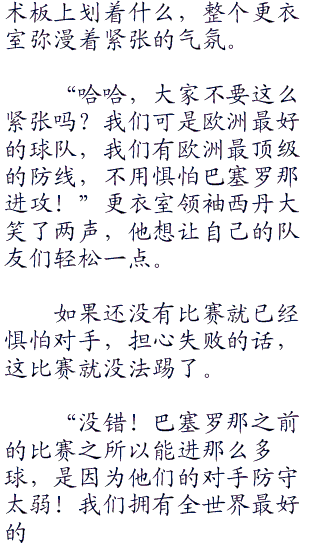 术板上划着什么，整个更衣
室弥漫着紧张的气氛。
“哈哈，大家不要这么
紧张吗？我们可是欧洲最好
的球队，我们有欧洲最顶级
的防线，不用惧怕巴塞罗那
进攻！”更衣室领袖西丹大
笑了两声，他想让自己的队
友们轻松一点。
如果还没有比赛就已经
惧怕对手，担心失败的话，
这比赛就没法踢了。
“没错！巴塞罗那之前
的比赛之所以能进那么多
球，是因为他们的对手防守
太弱！我们拥有全世界最好
的